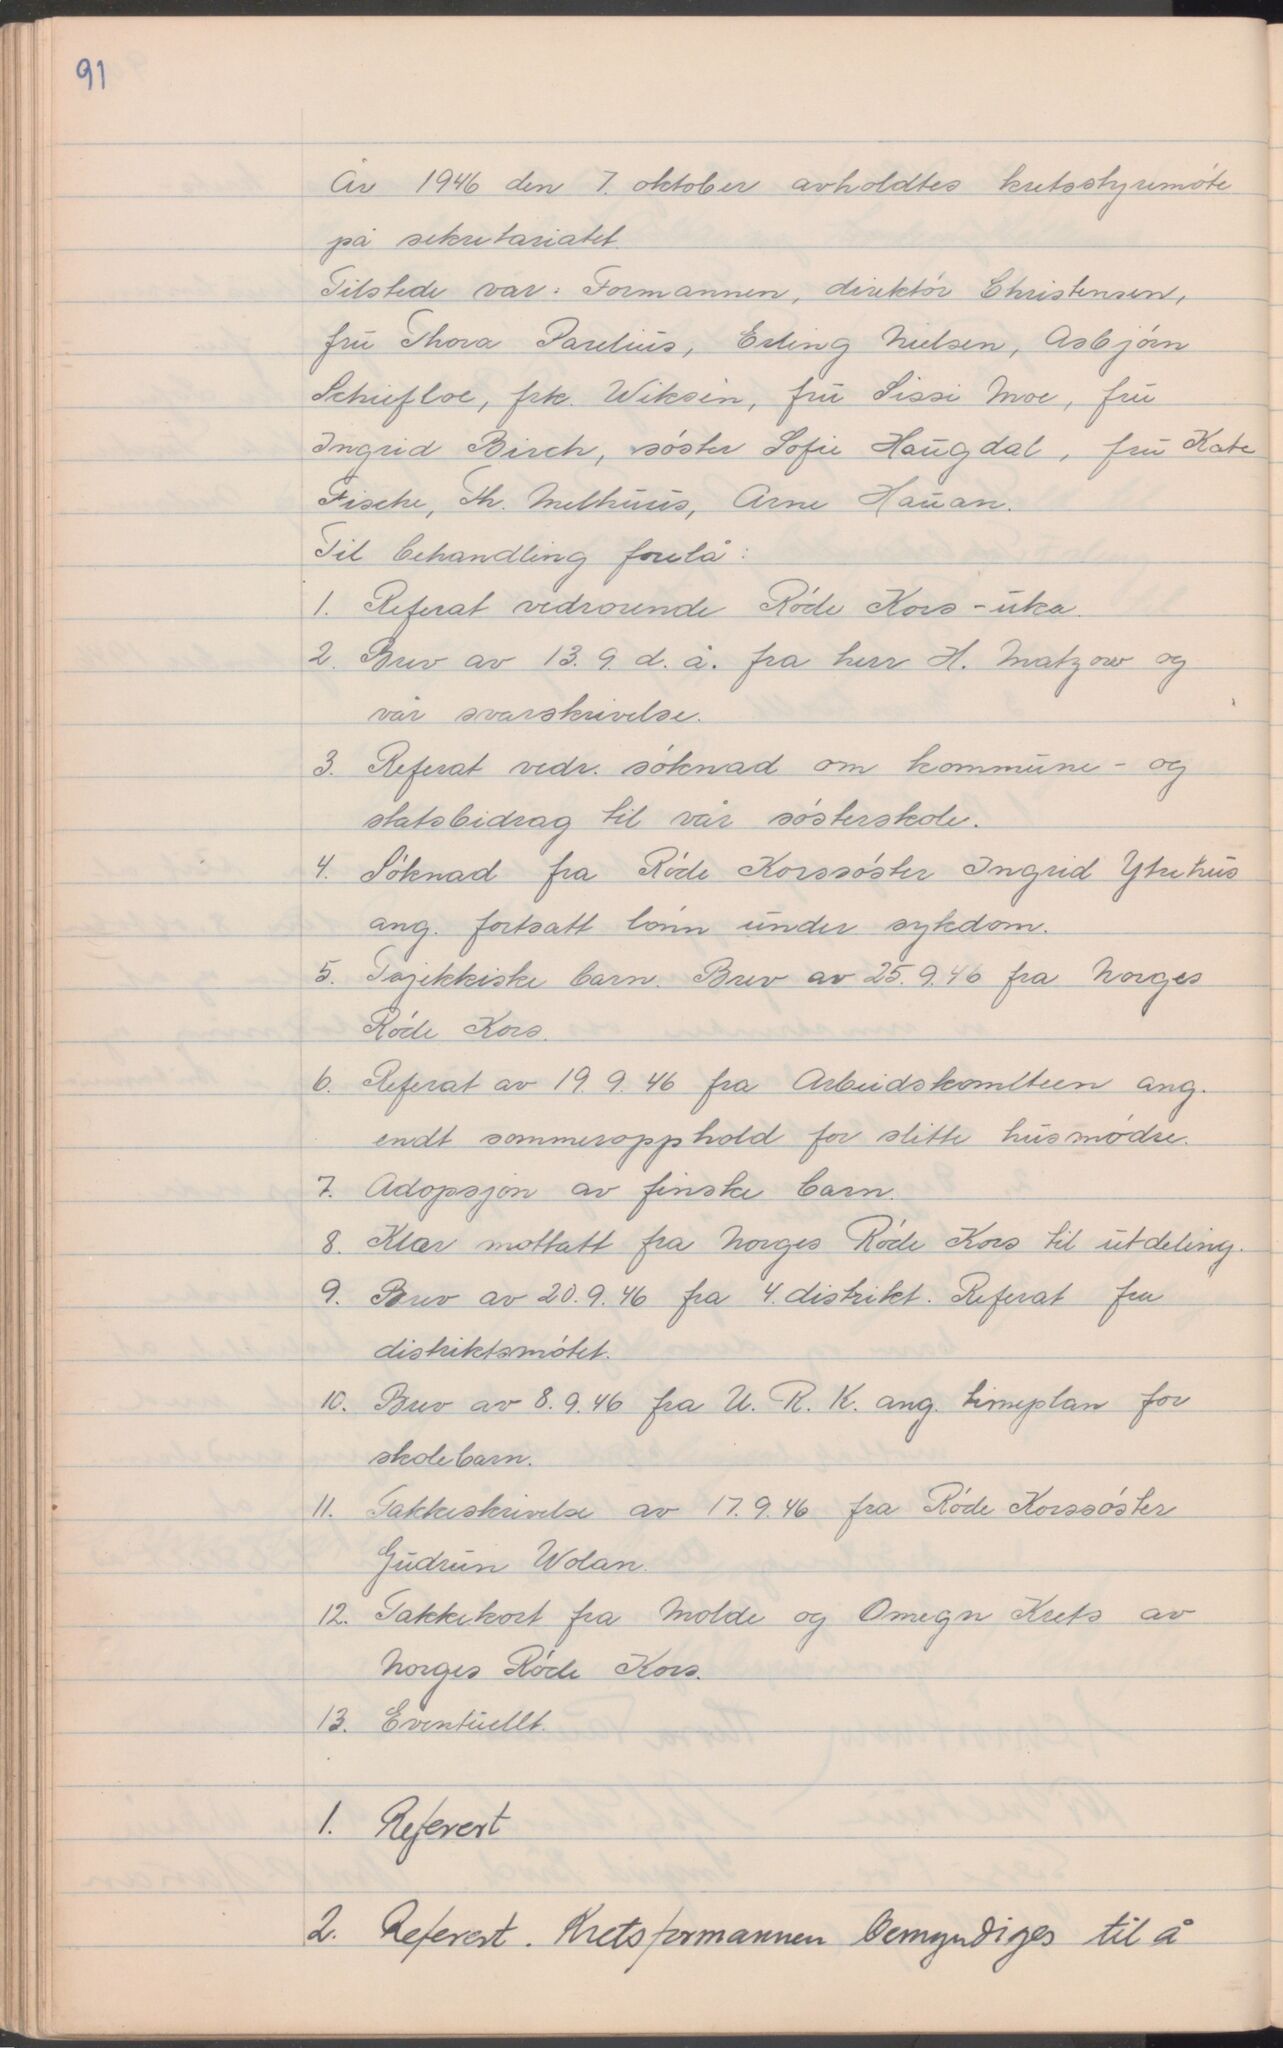 91
År 1946 den 7. oktober avholdtes kretsstyremöte
på sekretariatet.
Tilstede var: Formannen, direktör Christensen,
fru Thora Parelius, Erling Nielsen, Asbjörn
Schiefloe, frk. Wiksén, fru Sissi Moe, fru
Ingrid Birch, söster Sofie Haugdal, fru Kate
Fische, Th. Melhuus, Arne Hauan.
Til behandling forelå:
1. Referat vedrorende Röde Kors-uka.
2. Brev av 13. 9. d. å. fra herr H. Matzow og
vår svarskrivelse.
3. Referat vedr. söknad om kommune- og
statsbidrag til vår sösterskole.
4. Söknad fra Röde Korssöster Ingrid Ytrehus
ang. fortsatt lönn under sykdom.
5. Tsjekkiske barn. Brev av 25. 9. 46 fra Norges
Röde Kors.
6. Referat av 19. 9. 46 fra Arbeidskomiteen ang.
endt sommeropphold for slitte husmödre.
7. Adopsjon av finske barn.
8. Klær mottatt fra Norges Röde Kors til utdeling.
9. Brev av 20. 9. 46 fra 4. distrikt. Referat fra
distriktsmötet.
10. Brev av 8. 9. 46 fra U. R. K. ang. timeplan for
skolebarn.
11. Takkeskrivelse av 17. 9. 46 fra Röde Korssöster
Gudrun Wolan.
12. Takkekort fra Molde og Omegn Krets av
Norges Röde Kors.
13. Eventuellt.
1. Referert
2. Referert. Kretsformannen bemyndiges til å